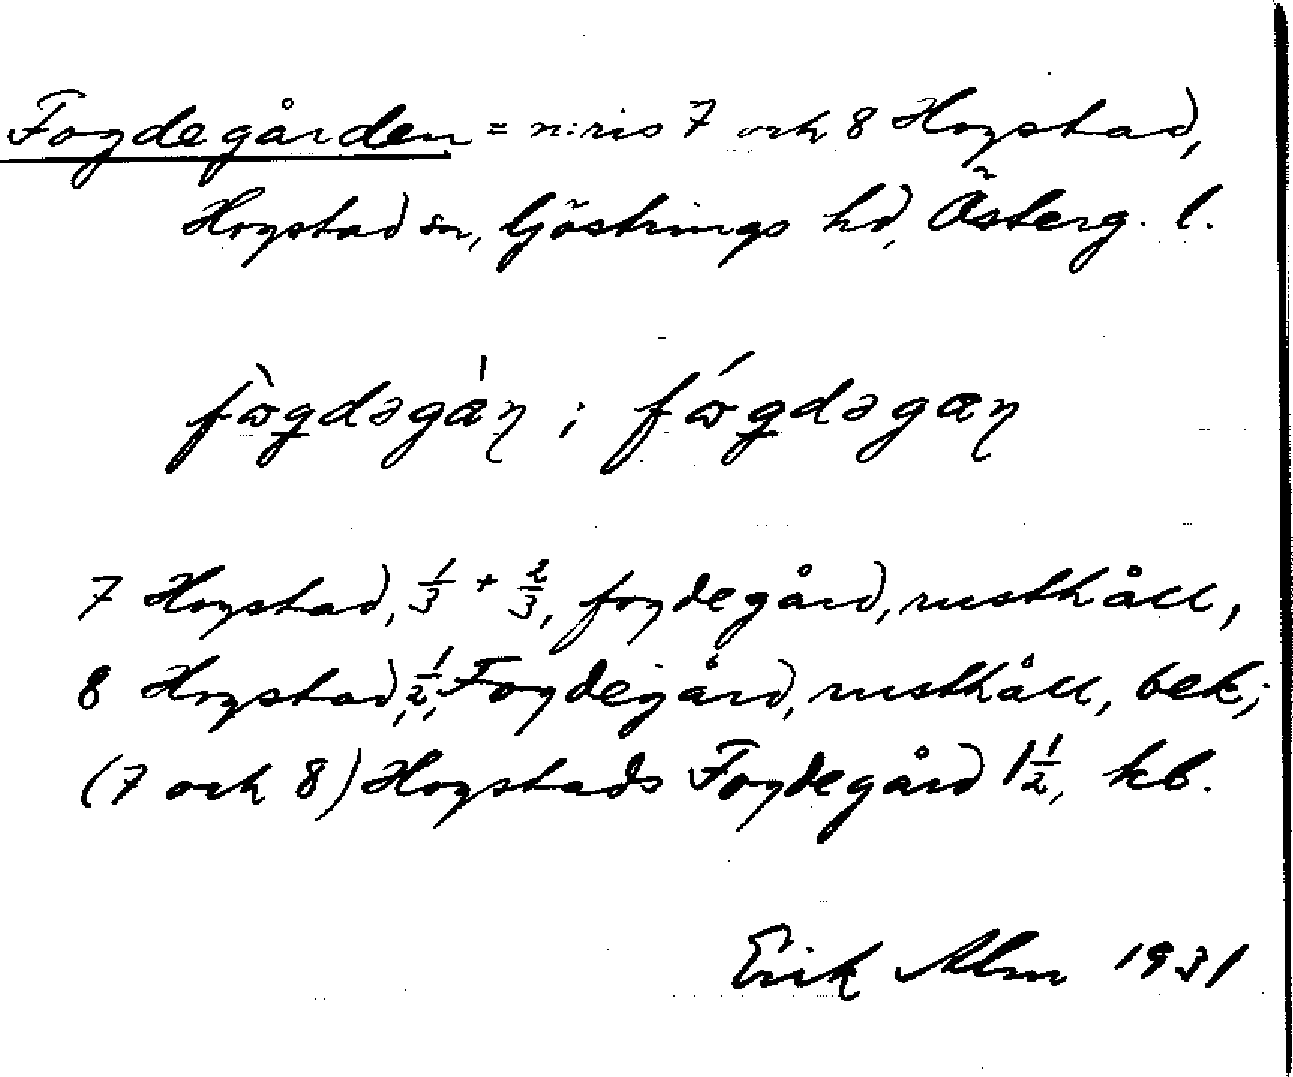 Fogdegården = n:ris 7 och 8 Hogstad,
Hogstad sn, Göstrings hd, Österg. l.
7 Hogstad, 1/3 + 2/3, fogdegård, rusthåll,
8 Hogstad, 1/2, Fogdegård, rusthåll, bek.;
(7 och 8) Hogstads Fogdegård 1 1/2, kb.
Erik Alm 1931